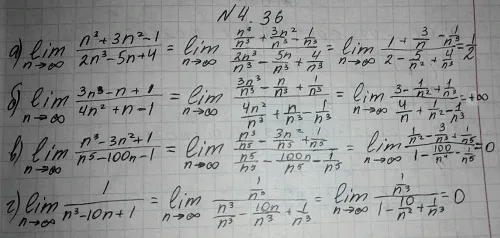 №4.36
а) lim n→∞ (n³+3n²-1)/(2n³-5n+4) = lim n→∞ (n³/n³+3n²/n³-1/n³)/(2n³/n³-5n/n³+4/n³) = lim n→∞ (1+3/n-1/n³)/(2-5/n²+4/n³) = 1/2
б) lim n→∞ (3n³-n+1)/(4n²+n-1) = lim n→∞ (3n³/n³-n/n³+1/n³)/(4n²/n³+n/n³-1/n³) = lim n→∞ (3-1/n²+1/n³)/(4/n+1/n²-1/n³) = +∞
в) lim n→∞ (n³-3n²+1)/(n⁵-100n-1) = lim n→∞ (n³/n⁵-3n²/n⁵+1/n⁵)/(n⁵/n⁵-100n/n⁵-1/n⁵) = lim n→∞ (1/n²-3/n³+1/n⁵)/(1-100/n⁴-1/n⁵) = 0
г) lim n→∞ 1/(n³-10n+1) = lim n→∞ (1/n³)/(n³/n³-10n/n³+1/n³) = lim n→∞ (1/n³)/(1-10/n²+1/n³) = 0